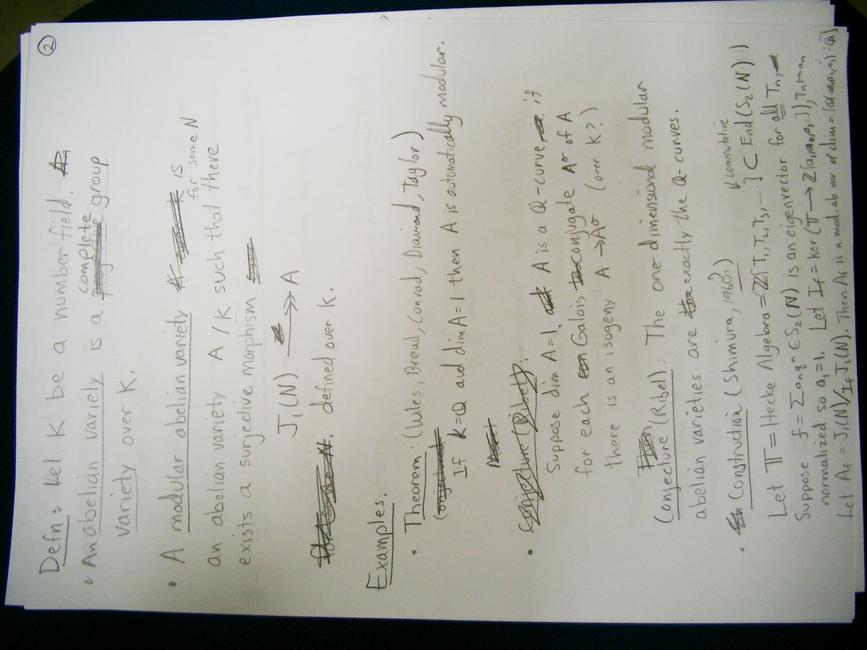 ②
Defn: Let K be a number field.
• An abelian variety is a complete group
variety over K.
• A modular abelian variety is
an abelian variety A/K such that there for some N
exists a surjective morphism
J₁(N) ↠ A
defined over K.
Examples:
• Theorem: (Wiles, Breuil, Conrad, Diamond, Taylor)
If K=Q and dim A=1 then A is automatically modular.
• Conjecture (Ribet):
Suppose dim A=1. A is a Q-curve, if
for each Galois conjugate A^σ of A
there is an isogeny A → A^σ (over K?)
Conjecture (Ribet): The one dimensional modular
abelian varieties are exactly the Q-curves.
• Construction (Shimura, 1960s) ↓ commutative
Let 𝕋 = Hecke Algebra = ℤ[T₁,T₂,T₃,...] ⊂ End(S₂(N))
Suppose f = Σ aₙqⁿ ∈ S₂(N) is an eigenvector for all Tₙ,
normalized so a₁=1. Let I_f = ker(𝕋 → ℤ[a₁,a₂,a₃,...]), Tₙ ↦ aₙ.
Let A_f = J₁(N)/I_f J₁(N). Then A_f is a mod. ab var of dim =